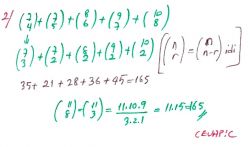 2) (7 4) + (7 5) + (8 6) + (9 7) + (10 8)
↓
(7 3) + (7 2) + (8 2) + (9 2) + (10 2) [(n r) = (n n-r) idi]
35 + 21 + 28 + 36 + 45 = 165
(11 8) = (11 3) = 11.10.9 / 3.2.1 = 11.15 = 165
CEVAP: C